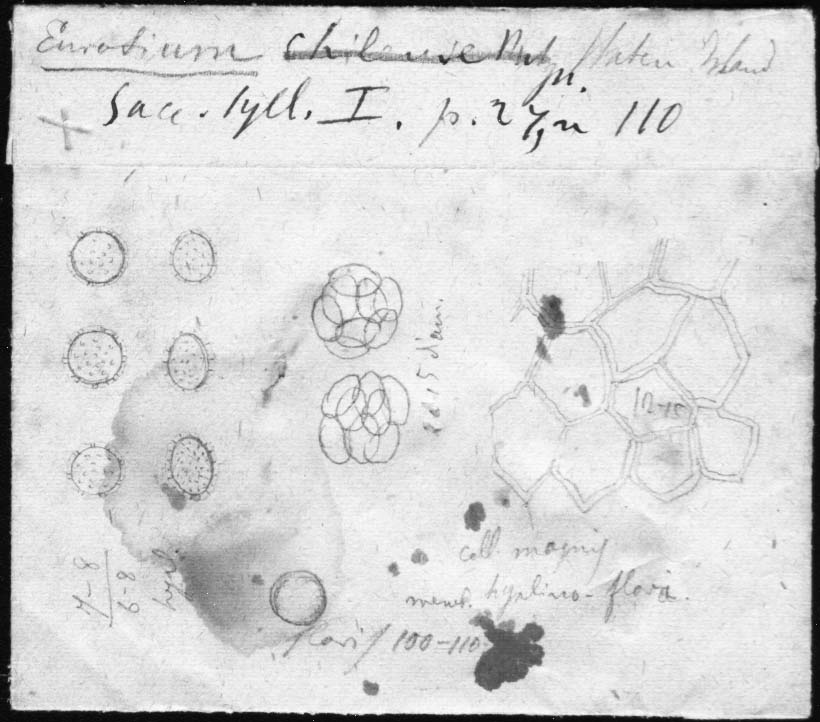 Eurotium chilense Staten Island
Sacc. Syll. I. p. 27, n 110
15 diam.
12-15
7-8
6-8
cell. magnis
memb. hyalino-flavid.
100-110